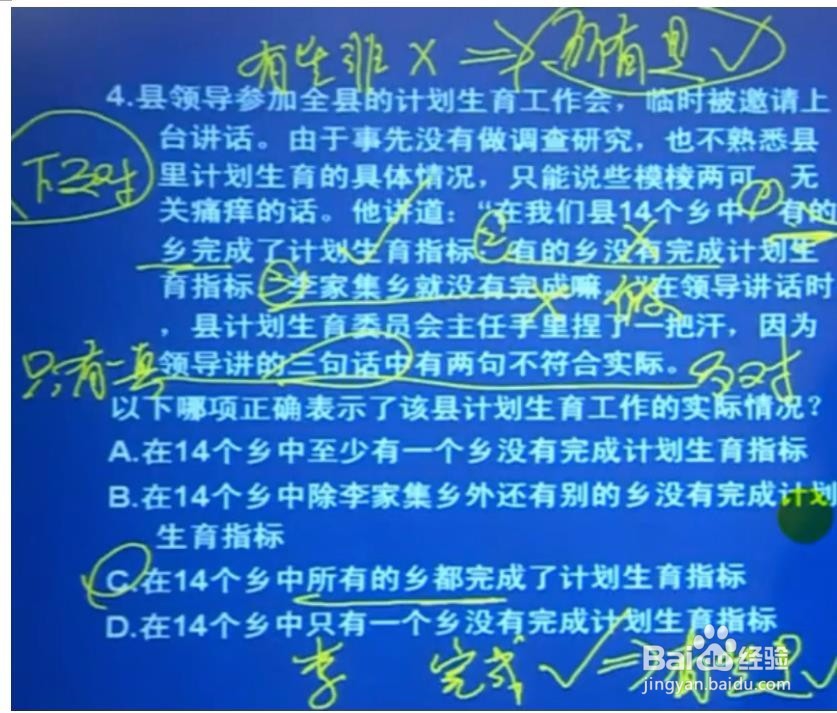 有 非 X ⇒ 所有是 ✓
4.县领导参加全县的计划生育工作会，临时被邀请上
台讲话。由于事先没有做调查研究，也不熟悉县
下反对
里计划生育的具体情况，只能说些模棱两可、无
关痛痒的话。他讲道：“在我们县14个乡中①有的
乡完成了计划生育指标②有的乡没有完成计划生
育指标③李家集乡就没有完成嘛。”在领导讲话时
，县计划生育委员会主任手里捏了一把汗，因为
只有一真
领导讲的三句话中有两句不符合实际。
以下哪项正确表示了该县计划生育工作的实际情况？
A.在14个乡中至少有一个乡没有完成计划生育指标
B.在14个乡中除李家集乡外还有别的乡没有完成计划
生育指标
C.在14个乡中所有的乡都完成了计划生育指标
D.在14个乡中只有一个乡没有完成计划生育指标
李 完成 ✓ ⇒ 有 是 ✓
Baidu经验
jingyan.baidu.com